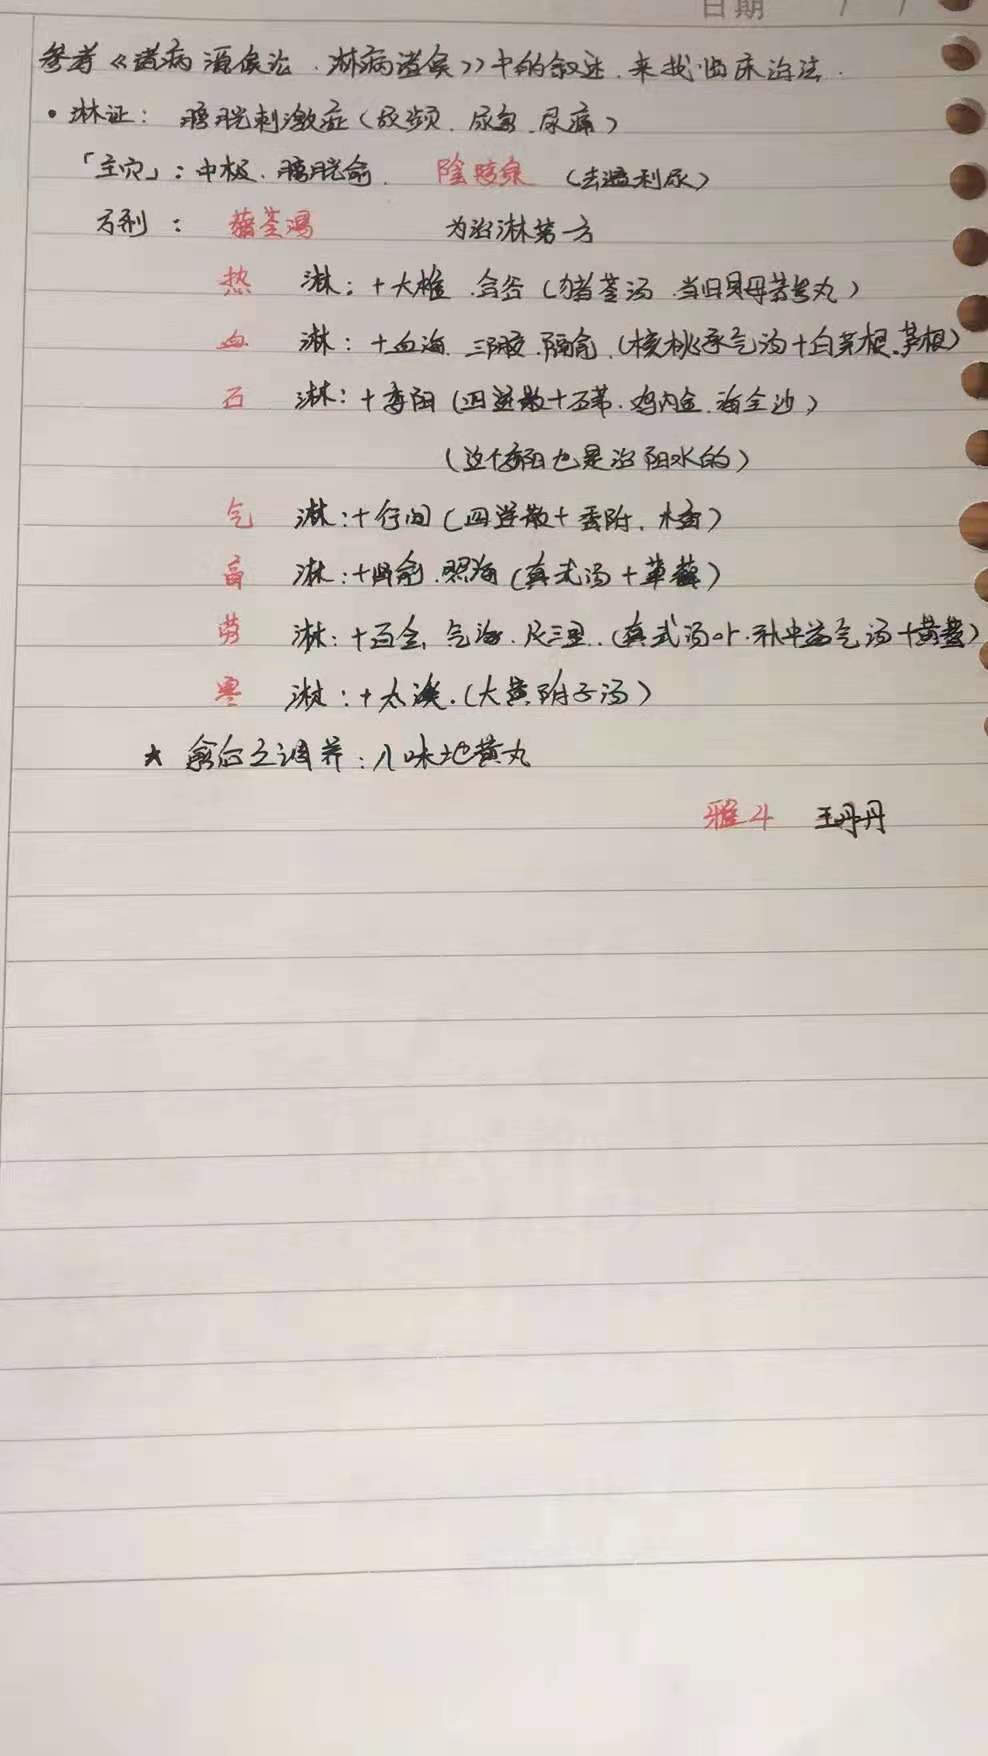 日期 / /
参考《诸病源候论·淋病诸候》中的叙述.来找临床治法.
• 淋证: 膀胱刺激症(尿频.尿急.尿痛)
「主穴」: 中极.膀胱俞. 陰陵泉 (去湿利尿)
方剂: 猪苓湯 为治淋第一方
热 淋: +大椎.合谷(猪苓汤.当归贝母苦参丸)
血 淋: +血海.三阴交.膈俞.(核桃承气汤+白茅根.茅根)
石 淋: +委阳(四逆散+石苇.鸡内金.海金沙)
(这个委阳也是治阳水的)
气 淋: +行间(四逆散+香附.木香)
膏 淋: +肾俞.照海(真武汤+萆薢)
劳 淋: +百会.气海.足三里.(真武汤or.补中益气汤+黄耆)
寒 淋: +太溪.(大黄附子汤)
★ 愈后之调养: 八味地黄丸
雅斗 王丹丹